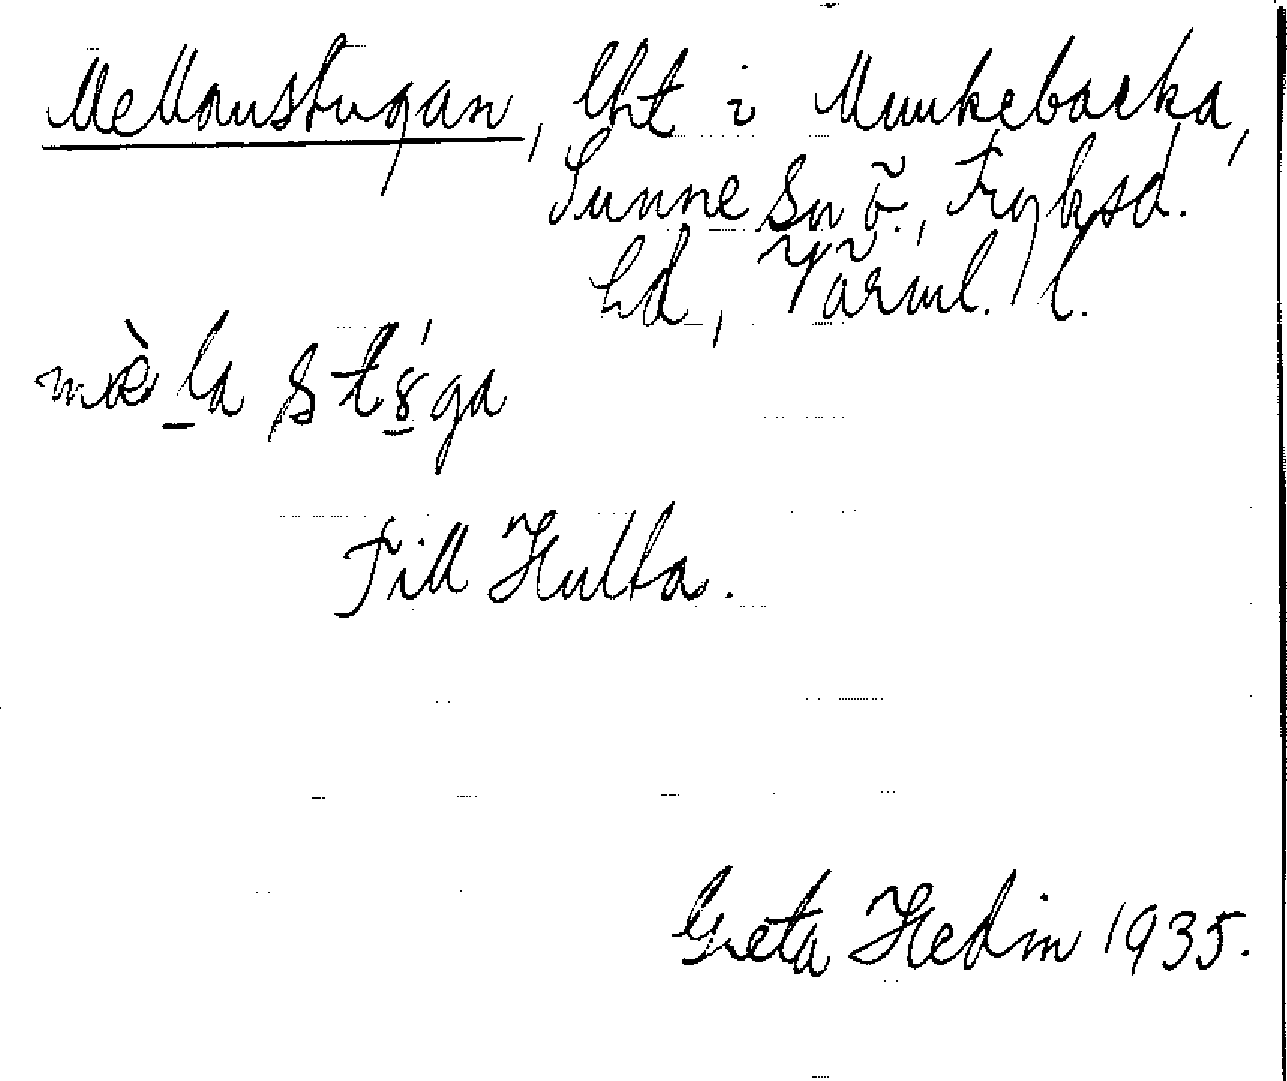 Mellanstugan, lht i Munkebacka,
Sunne sn ö., Fryksd.
hd, Värml. l.
mæ̀la stúga
Till Hulta.
Greta Hedin 1935.